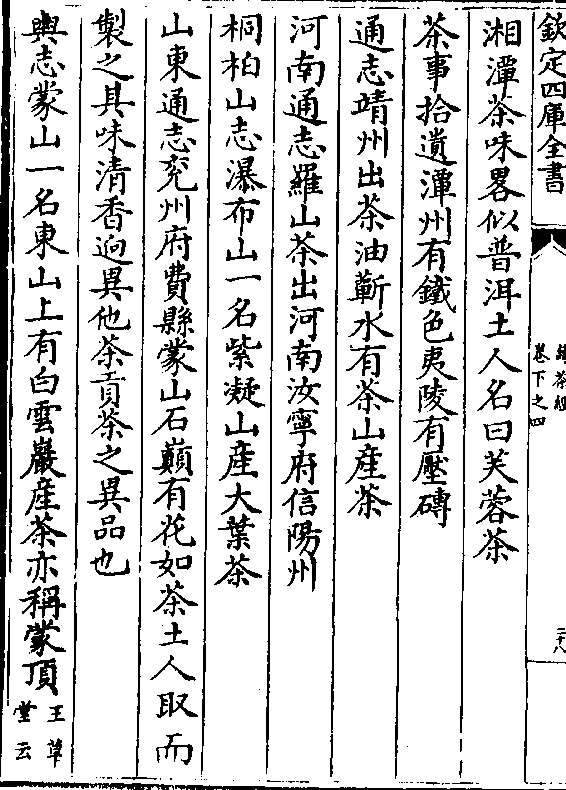 欽定四庫全書
續茶經
卷下之四
二十八
湘潭茶味畧似普洱土人名曰芙蓉茶
茶事拾遺潭州有鐵色夷陵有壓磚
通志靖州出茶油蘄水有茶山產茶
河南通志羅山茶出河南汝寧府信陽州
桐柏山志瀑布山一名紫凝山產大葉茶
山東通志兖州府費縣蒙山石巔有花如茶土人取而
製之其味清香逈異他茶貢茶之異品也
輿志蒙山一名東山上有白雲巖產茶亦稱蒙頂
王草
堂云